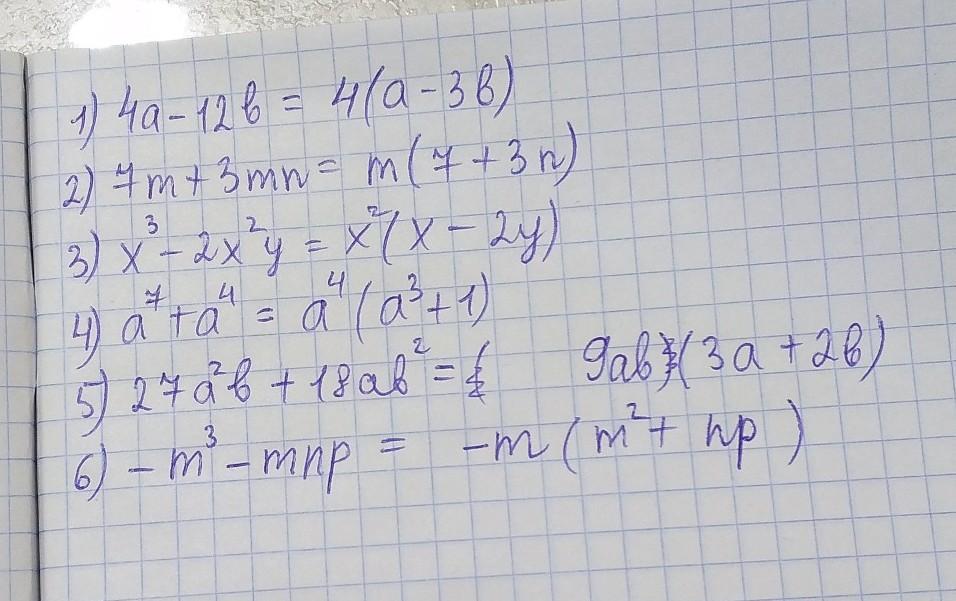 1) 4a - 12b = 4(a - 3b)
2) 7m + 3mn = m(7 + 3n)
3) x³ - 2x²y = x²(x - 2y)
4) a⁷ + a⁴ = a⁴(a³ + 1)
5) 27a²b + 18ab² = 9ab(3a + 2b)
6) -m³ - mnp = -m(m² + np)